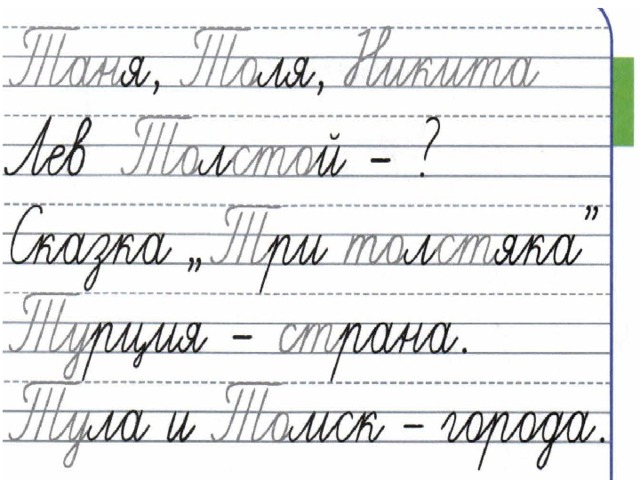 Таня, Толя, Никита
Лев Толстой – ?
Сказка „Три толстяка”
Турция – страна.
Тула и Томск – города.